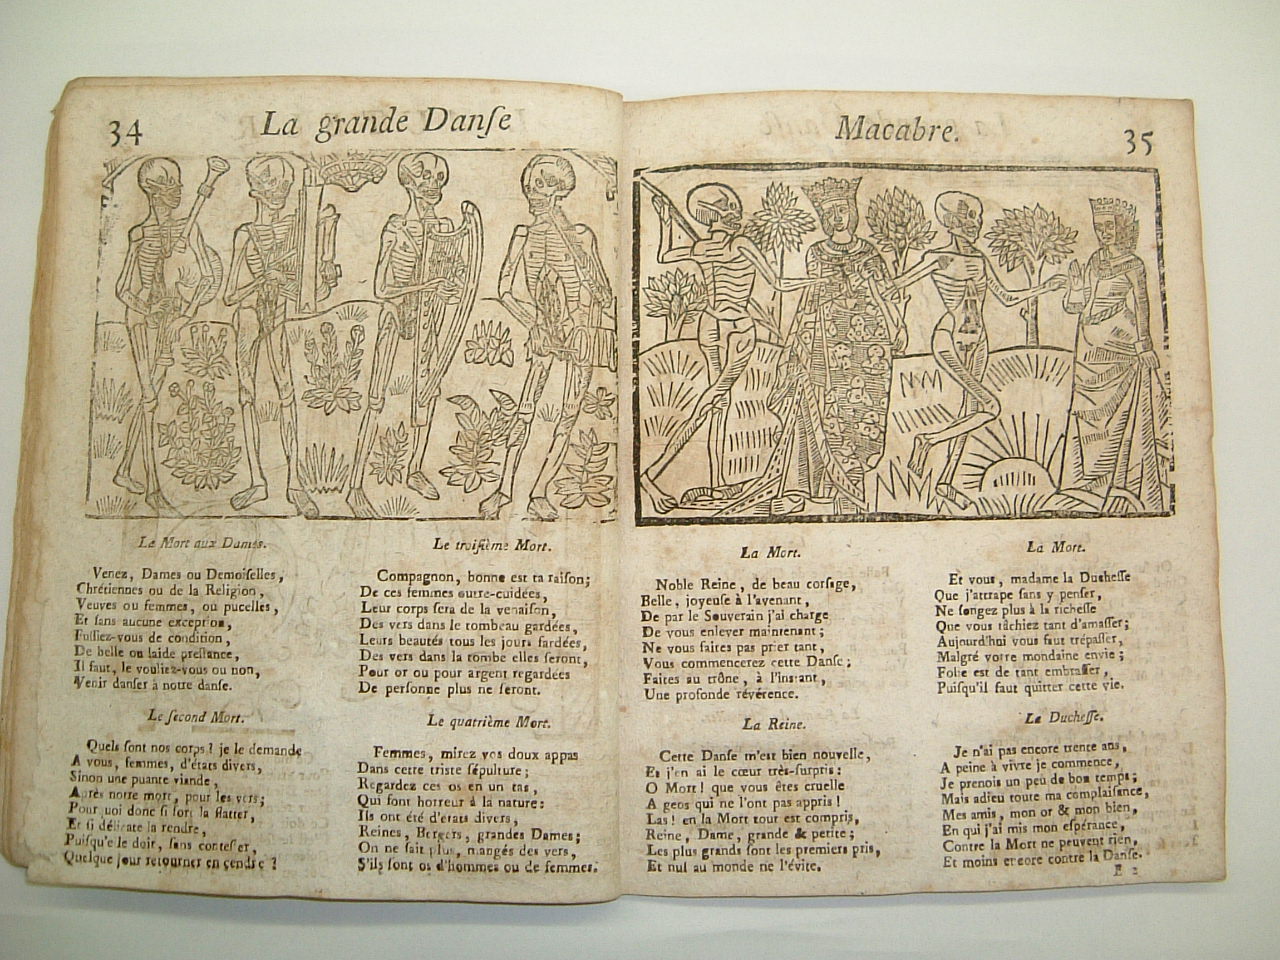 34
La grande Danſe
Le Mort aux Dames.
Venez, Dames ou Demoiſelles,
Chrétiennes ou de la Religion,
Veuves ou femmes, ou pucelles,
Et ſans aucune exception,
Fuſſiez-vous de condition,
De belle ou laide preſtance,
Il faut, le vouliez-vous ou non,
Venir danſer à notre danſe.
Le ſecond Mort.
Quels ſont nos corps? je le demande
A vous, femmes, d'états divers,
Sinon une puante viande,
Après notre mort, pour les vers;
Pourquoi donc ſi fort la flatter,
Et ſi délicate la rendre,
Puiſqu'elle doit, ſans conteſter,
Quelque jour retourner en cendre?
Le troiſième Mort.
Compagnon, bonne eſt ta raiſon;
De ces femmes outre-cuidées,
Leur corps ſera de la venaiſon,
Des vers dans le tombeau gardées,
Leurs beautés tous les jours fardées,
Des vers dans la tombe elles ſeront,
Pour or ou pour argent regardées
De perſonne plus ne ſeront.
Le quatrième Mort.
Femmes, mirez vos doux appas
Dans cette triste ſépulture;
Regardez ces os en un tas,
Qui font horreur à la nature:
Ils ont été d'états divers,
Reines, Bergers, grandes Dames;
On ne ſait plus, mangés des vers,
S'ils ſont os d'hommes ou de femmes.
Macabre.
35
La Mort.
Noble Reine, de beau corſage,
Belle, joyeuſe à l'avenant,
De par le Souverain j'ai charge
De vous enlever maintenant;
Ne vous faites pas prier tant,
Vous commencerez cette Danſe;
Faites au trône, à l'inſtant,
Une profonde révérence.
La Reine.
Cette Danſe m'eſt bien nouvelle,
Et j'en ai le cœur très-ſurpris:
O Mort! que vous êtes cruelle
A gens qui ne l'ont pas appris!
Las! en la Mort tout eſt compris,
Reine, Dame, grande & petite;
Les plus grands ſont les premiers pris,
Et nul au monde ne l'évite.
La Mort.
Et vous, madame la Ducheſſe
Que j'attrape ſans y penſer,
Ne ſongez plus à la richeſſe
Que vous tâchiez tant d'amaſſer;
Aujourd'hui vous faut trépaſſer,
Malgré votre mondaine envie;
Folie eſt de tant embraſſer,
Puiſqu'il faut quitter cette vie.
La Ducheſſe.
Je n'ai pas encore trente ans,
A peine à vivre je commence,
Je prenois un peu de bon temps;
Mais adieu toute ma complaiſance,
Mes amis, mon or & mon bien,
En qui j'ai mis mon eſpérance,
Contre la Mort ne peuvent rien,
Et moins encore contre la Danſe.
E 2